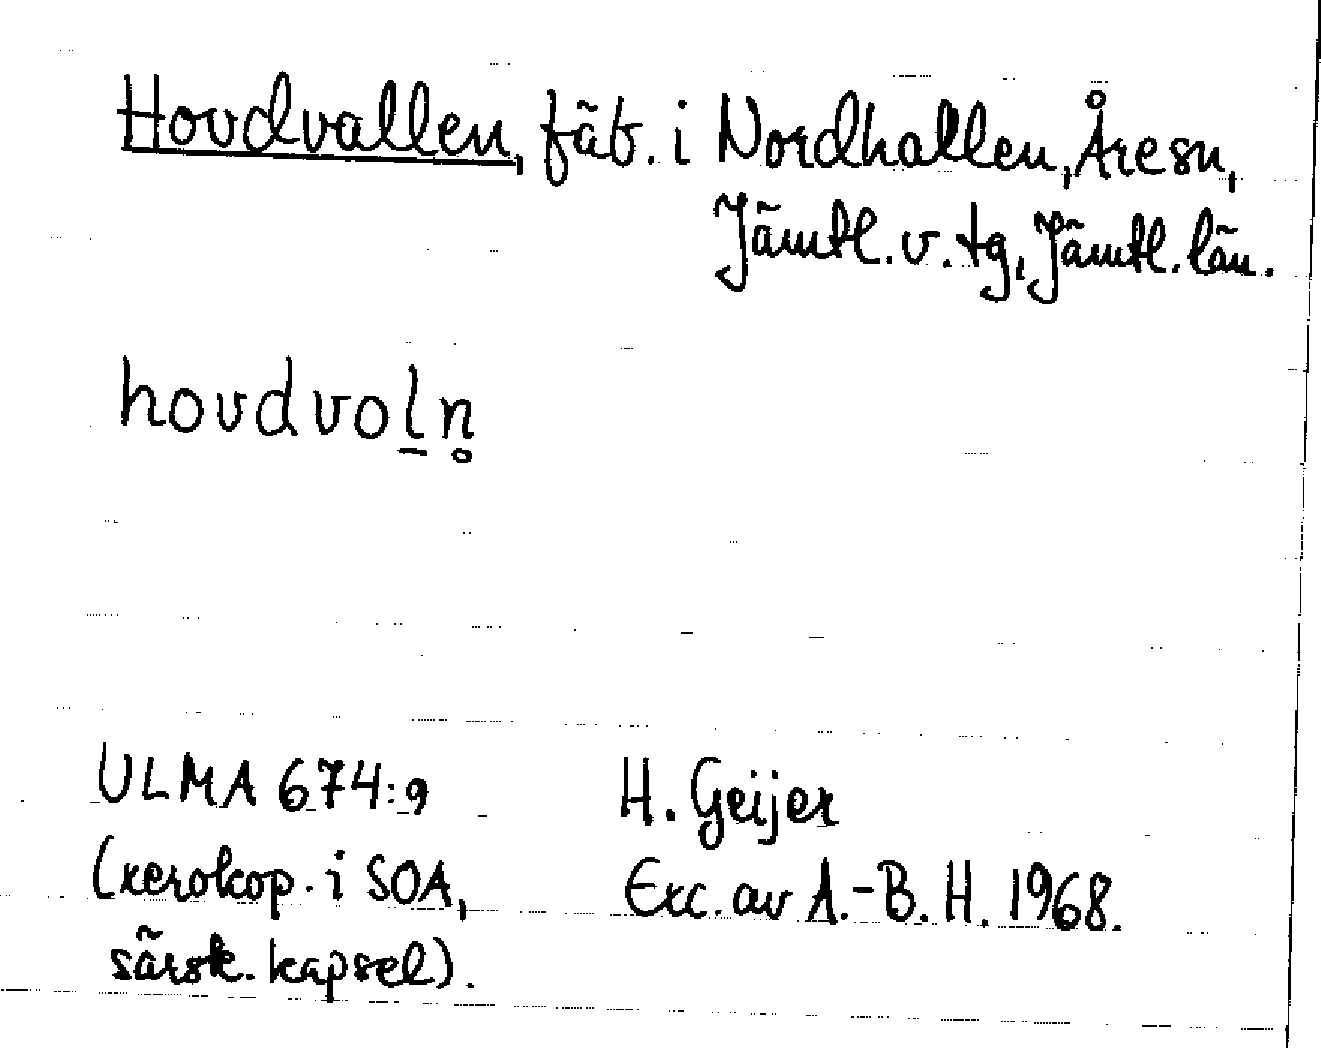 Hovdvallen, fäb. i Nordhallen, Åresn,
Jämtl. v. tg, Jämtl. län.
hovdvol̠n̥
ULMA 674:9 H. Geijer
(xerokop. i SOA, Exc. av A.-B. H. 1968.
särsk. kapsel).